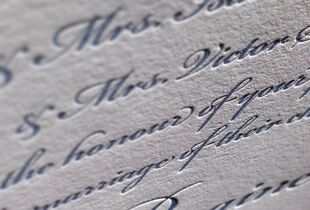 & Mrs.
& Mrs. Victor
the honour of your
marriage of their